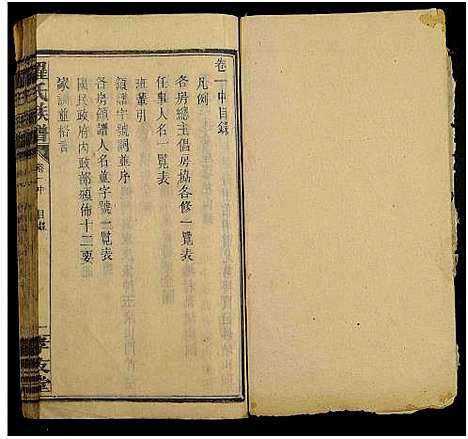 卷一中目錄
凡例
各房總主倡房協各修一覽表
任事人名一覽表
班輩引
領譜字號詞並序
各房領譜人名並字號一覽表
國民政府內政部頒佈十二要
家訓並格言
羅氏族譜
卷一中 目錄
一 孝友堂